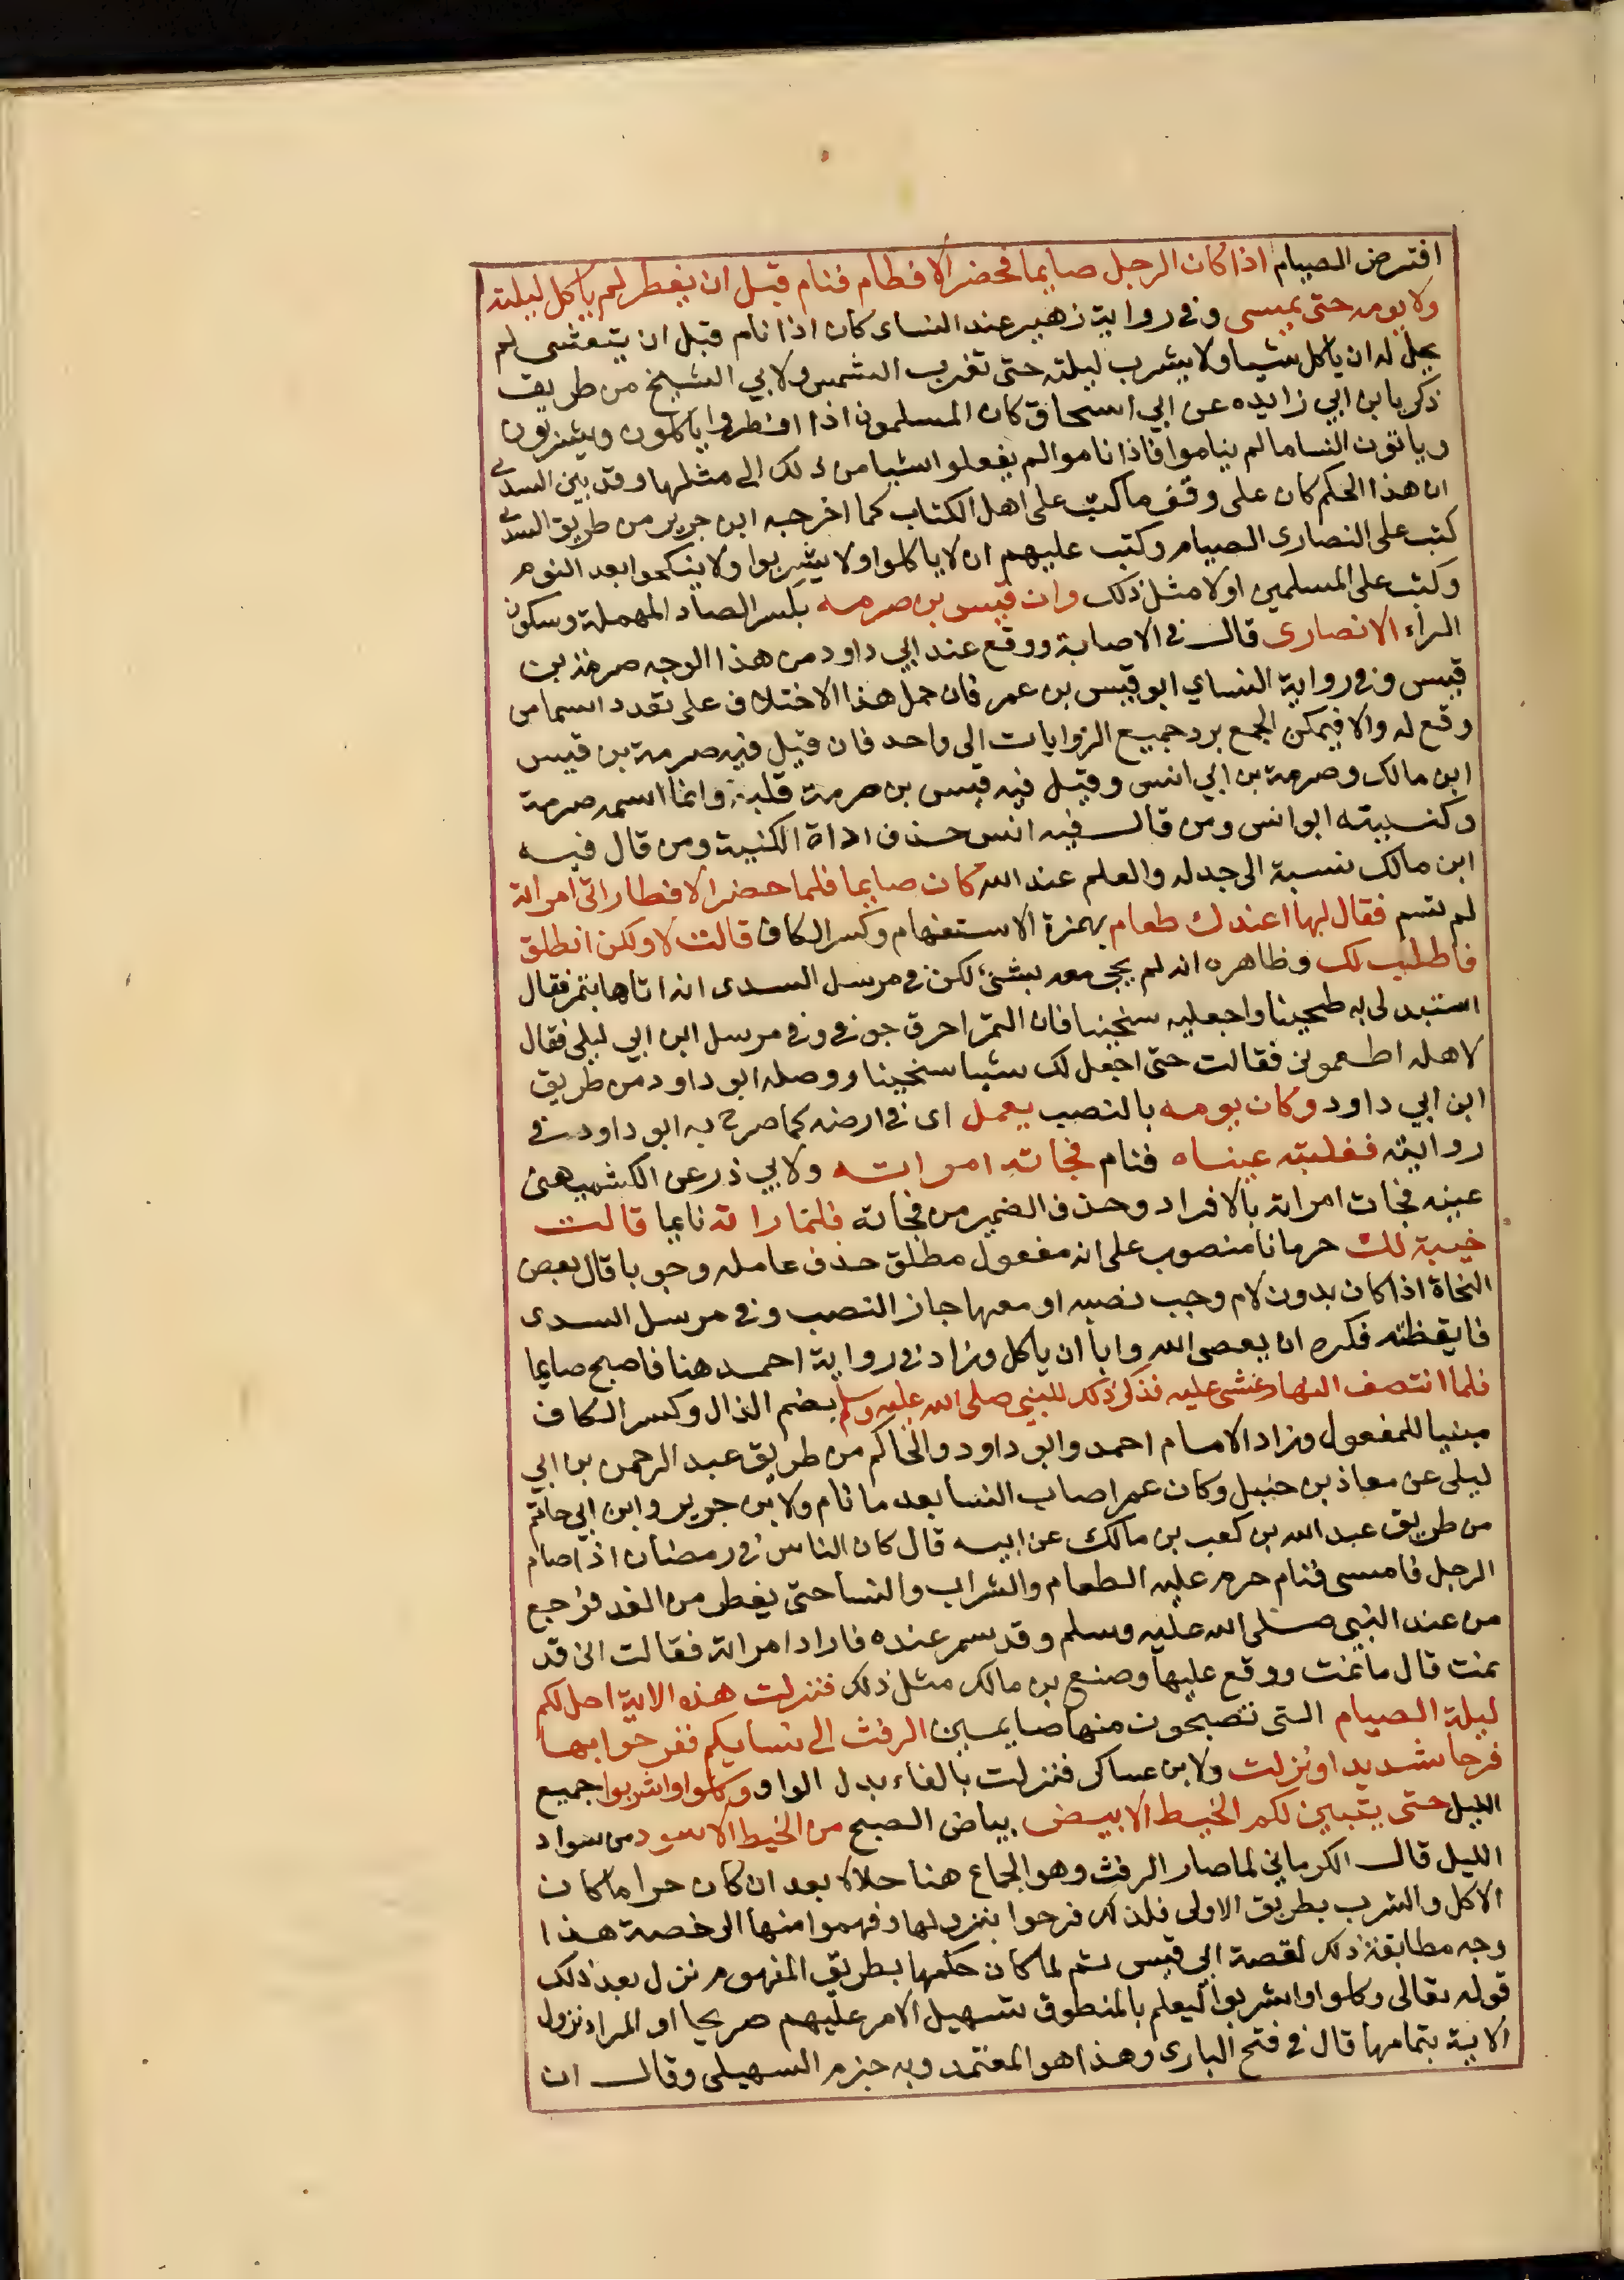 افترض الصيام اذا كان الرجل صايما فحضر الافطام فنام قبل ان يفطر لم ياكل ليلته
ولا يومه حتى يمسى وفى رواية زهير عند النساى كان اذا نام قبل ان يتعشى لم
يحل له ان ياكل شيا ولا يشرب ليلته حتى تغرب الشمس ولابي الشيخ من طريق
زكريا بن ابي زايده عن ابي اسحاق كان المسلمون اذا افطروا ياكلون ويشربون
وياتون النسا ما لم يناموا فاذا ناموا لم يفعلوا شيا من ذلك الى مثلها وقد بين السدى
ان هذا الحكم كان على وقف ما كتب على اهل الكتاب كما اخرجه ابن جرير من طريق السدى
كتب على النصارى الصيام وكتب عليهم ان لا ياكلوا ولا يشربوا ولا ينكحوا بعد النوم
وكتب على المسلمين اولا مثل ذلك وان قيس بن صرمه بكسر الصاد المهملة وسكون
الراء الانصارى قال فى الاصابة ووقع عند ابي داود من هذا الوجه صرمة بن
قيس وفى رواية النساي ابو قيس بن عمر فان حمل هذا الاختلاف على تعدد اسما من
وقع له والا فيمكن الجمع برد جميع الروايات الى واحد فان قيل فيه صرمة بن قيس
ابن مالك وصرمة بن ابي انس وقيل فيه قيس بن صرمة قلبه وانما اسمه صرمة
وكنيته ابو انس ومن قال فيه انس حذف اداة الكنية ومن قال فيه
ابن مالك نسبة الى جد له والعلم عند الله كان صايما فلما حضر الافطار اتى امراته
لم تسم فقال لها اعندك طعام بهمزة الاستفهام وكسر الكاف قالت لا ولكن انطلق
فاطلب لك وظاهره انه لم يجى معه بشئ لكن فى مرسل السدى انه اتاها بتمر فقال
استبدلى به طحينا واجعليه سخينا فان التمر احرق جوفى وفى مرسل ابن ابي ليلى فقال
لاهله اطعمونى فقالت حتى اجعل لك شيا سخينا ووصله ابو داود من طريق
ابن ابي داود وكان يومه بالنصب يعمل اى فى ارضه كما صرح به ابو داود فى
روايته فغلبته عيناه فنام فجاته امراته ولابي ذر عن الكشميهنى
عينه فجات امراته بالافراد وحذف الضمير من فجاته فلما راته نايما قالت
خيبة لك حرمانا منصوب على انه مفعول مطلق حذف عامله وجوبا قال بعض
النحاة اذا كان بدون لام وجب نصبه او معها جاز النصب وفى مرسل السدى
فايقظته فكره ان يعصى الله وابا ان ياكل وزاد فى رواية احمد هنا فاصبح صايما
فلما انتصف النهار غشى عليه فذكر ذلك للنبي صلى الله عليه وسلم بضم الذال وكسر الكاف
مبنيا للمفعول وزاد الامام احمد وابو داود والحاكم من طريق عبد الرحمن بن ابي
ليلى عن معاذ بن حنبل وكان عمر اصاب النسا بعد ما نام ولابن جرير وابن ابي حاتم
من طريق عبد الله بن كعب بن مالك عن ابيه قال كان الناس فى رمضان اذا صام
الرجل فامسى فنام حرم عليه الطعام والشراب والنسا حتى يفطر من الغد فرجع
من عند النبي صلى الله عليه وسلم وقد سمر عنده فاراد امراته فقالت انى قد
نمت قال ما نمت ووقع عليها وصنع بن مالك مثل ذلك فنزلت هذه الاية احل لكم
ليلة الصيام التى تصبحون منها صايمين الرفث الى نسايكم ففرحوا بها
فرحا شديدا ونزلت ولابن عساكر فنزلت بالفاء بدل الواو وكلوا واشربوا جميع
الليل حتى يتبين لكم الخيط الابيض بياض الصبح من الخيط الاسود من سواد
الليل قال الكرماني لما صار الرفث وهو الجماع هنا حلالا بعد ان كان حراما كان
الاكل والشرب بطريق الاولى فلذلك فرحوا بنزولها وفهموا منها الرخصة هذا
وجه مطابقة ذلك لقصة ابي قيس ثم لما كان حكمها بطريق المفهوم نزل بعد ذلك
قوله تعالى وكلوا واشربوا ليعلم بالمنطوق تسهيل الامر عليهم صريحا او المراد نزول
الاية بتمامها قال فى فتح البارى وهذا هو المعتمد وبه جزم السهيلى وقال ان